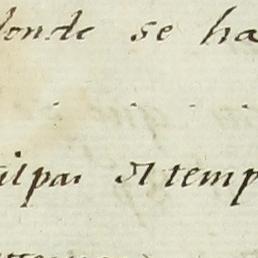 donde se ha
ilpas el temp